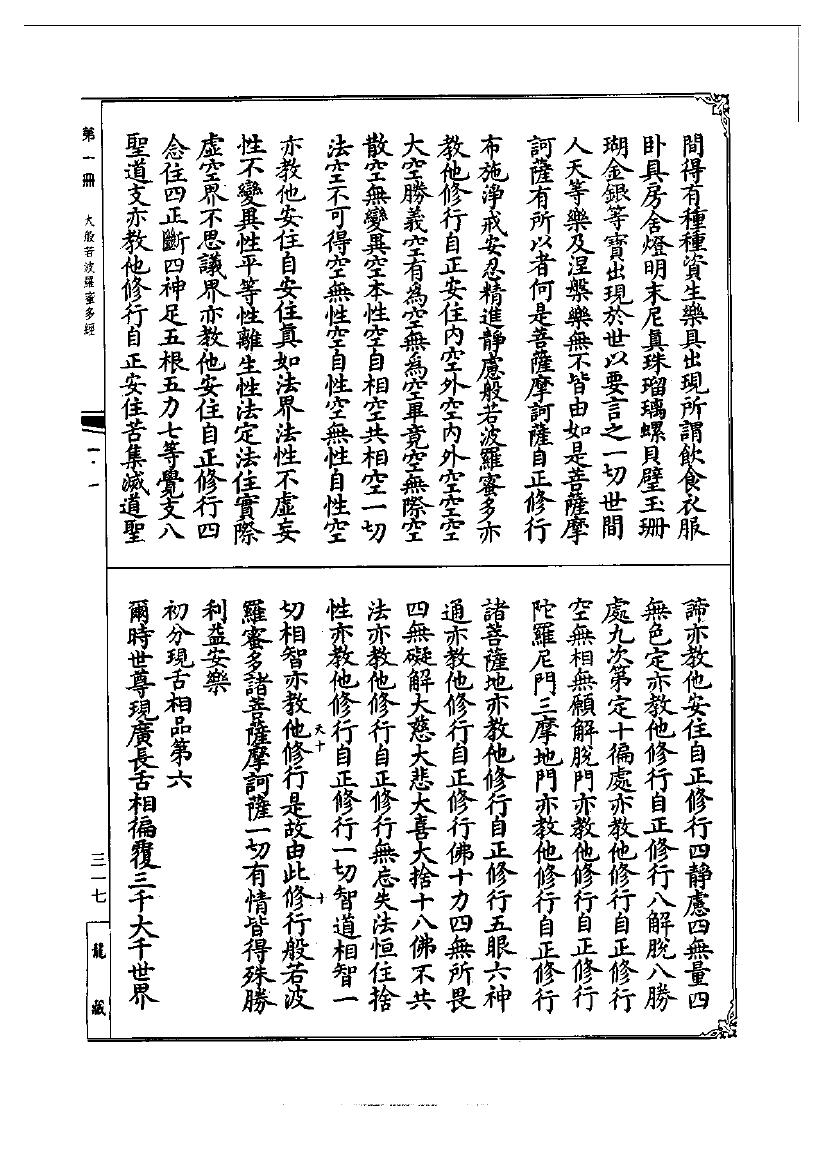 間得有種種資生樂具出現所謂飲食衣服
卧具房舍燈明末尼真珠瑠璃螺貝璧玉珊
瑚金銀等寶出現於世以要言之一切世間
人天等樂及涅槃樂無不皆由如是菩薩摩
訶薩有所以者何是菩薩摩訶薩自正修行
布施淨戒安忍精進靜慮般若波羅蜜多亦
教他修行自正安住內空外空內外空空空
大空勝義空有為空無為空畢竟空無際空
散空無變異空本性空自相空共相空一切
法空不可得空無性空自性空無性自性空
亦教他安住自安住真如法界法性不虛妄
性不變異性平等性離生性法定法住實際
虛空界不思議界亦教他安住自正修行四
念住四正斷四神足五根五力七等覺支八
聖道支亦教他修行自正安住苦集滅道聖
諦亦教他安住自正修行四靜慮四無量四
無色定亦教他修行自正修行八解脫八勝
處九次第定十徧處亦教他修行自正修行
空無相無願解脫門亦教他修行自正修行
陀羅尼門三摩地門亦教他修行自正修行
諸菩薩地亦教他修行自正修行五眼六神
通亦教他修行自正修行佛十力四無所畏
四無礙解大慈大悲大喜大捨十八佛不共
法亦教他修行自正修行無忘失法恒住捨
性亦教他修行自正修行一切智道相智一
切相智亦教他修行是故由此修行般若波
羅蜜多諸菩薩摩訶薩一切有情皆得殊勝
利益安樂
初分現舌相品第六
爾時世尊現廣長舌相徧覆三千大千世界
天十
十
第一冊
大般若波羅蜜多經
一·一
三一七
龍藏